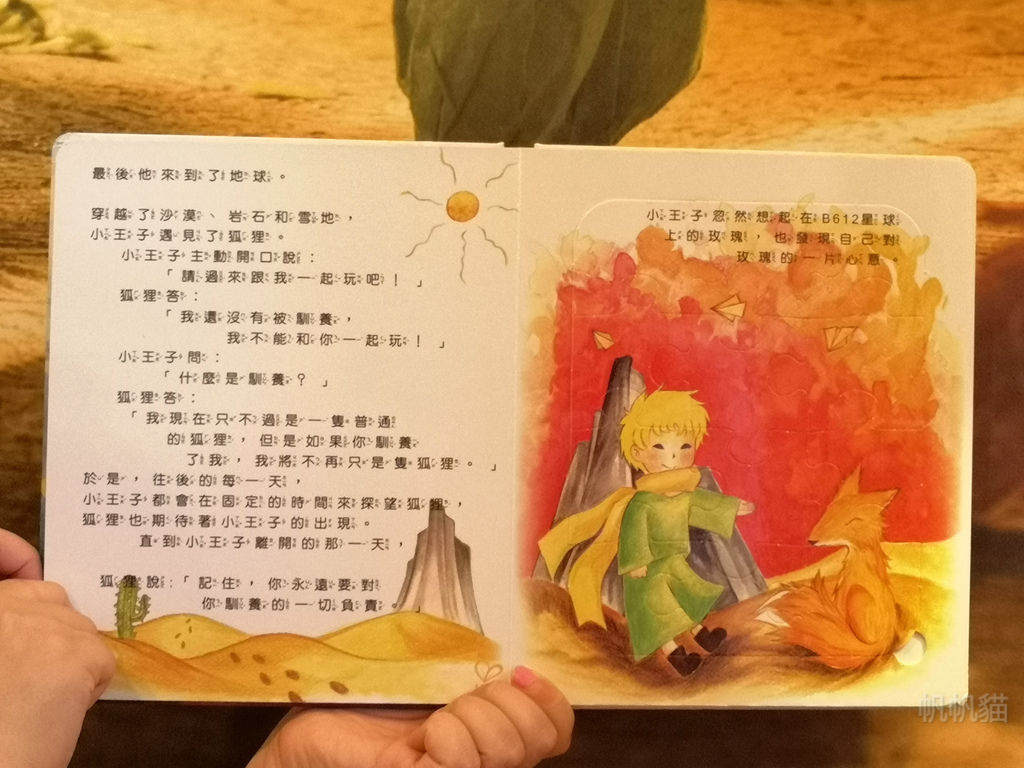 最後他來到了地球。
穿越了沙漠、岩石和雪地，
小王子遇見了狐狸。
小王子主動開口說：
「請過來跟我一起玩吧！」
狐狸答：
「我還沒有被馴養，
我不能和你一起玩！」
小王子問：
「什麼是馴養？」
狐狸答：
「我現在只不過是一隻普通
的狐狸，但是如果你馴養
了我，我將不再只是隻狐狸。」
於是，往後的每一天，
小王子都會在固定的時間來探望狐狸，
狐狸也期待著小王子的出現。
直到小王子離開的那一天，
狐狸說：「記住，你永遠要對
你馴養的一切負責。」
小王子忽然想起在B612星球
上的玫瑰，也發現自己對
玫瑰的一片心意。
帆帆貓